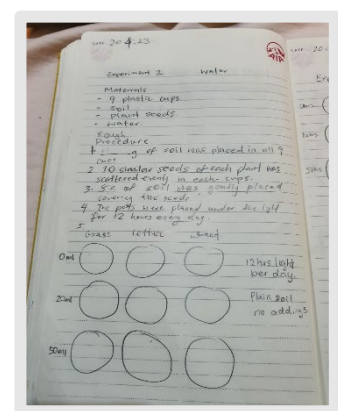 DATE 20.4.23
Experiment 2 Water
Materials
- 9 plastic cups
- soil
- plant seeds
- water
Rough
Procedure
1. g of soil was placed in all 9
cups
2. 10 similar seeds of each plant was
scattered evenly in each cups.
3. 5g of soil was gently placed
covering the seeds
4. The pots were placed under the light
for 12 hours every day.
5.
Grass lettuce
0ml
12 hrs light
per day.
20ml
Plain soil
no addings
50ml
AIA
DATE 20